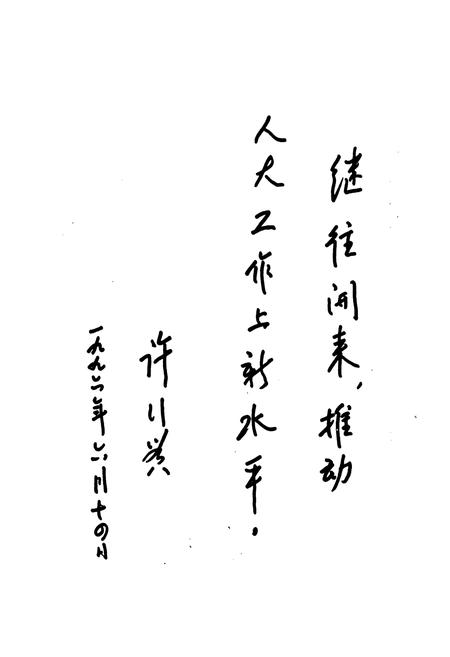 继往开来，推动
人大工作上新水平。
许行贵
一九九六年六月十四日